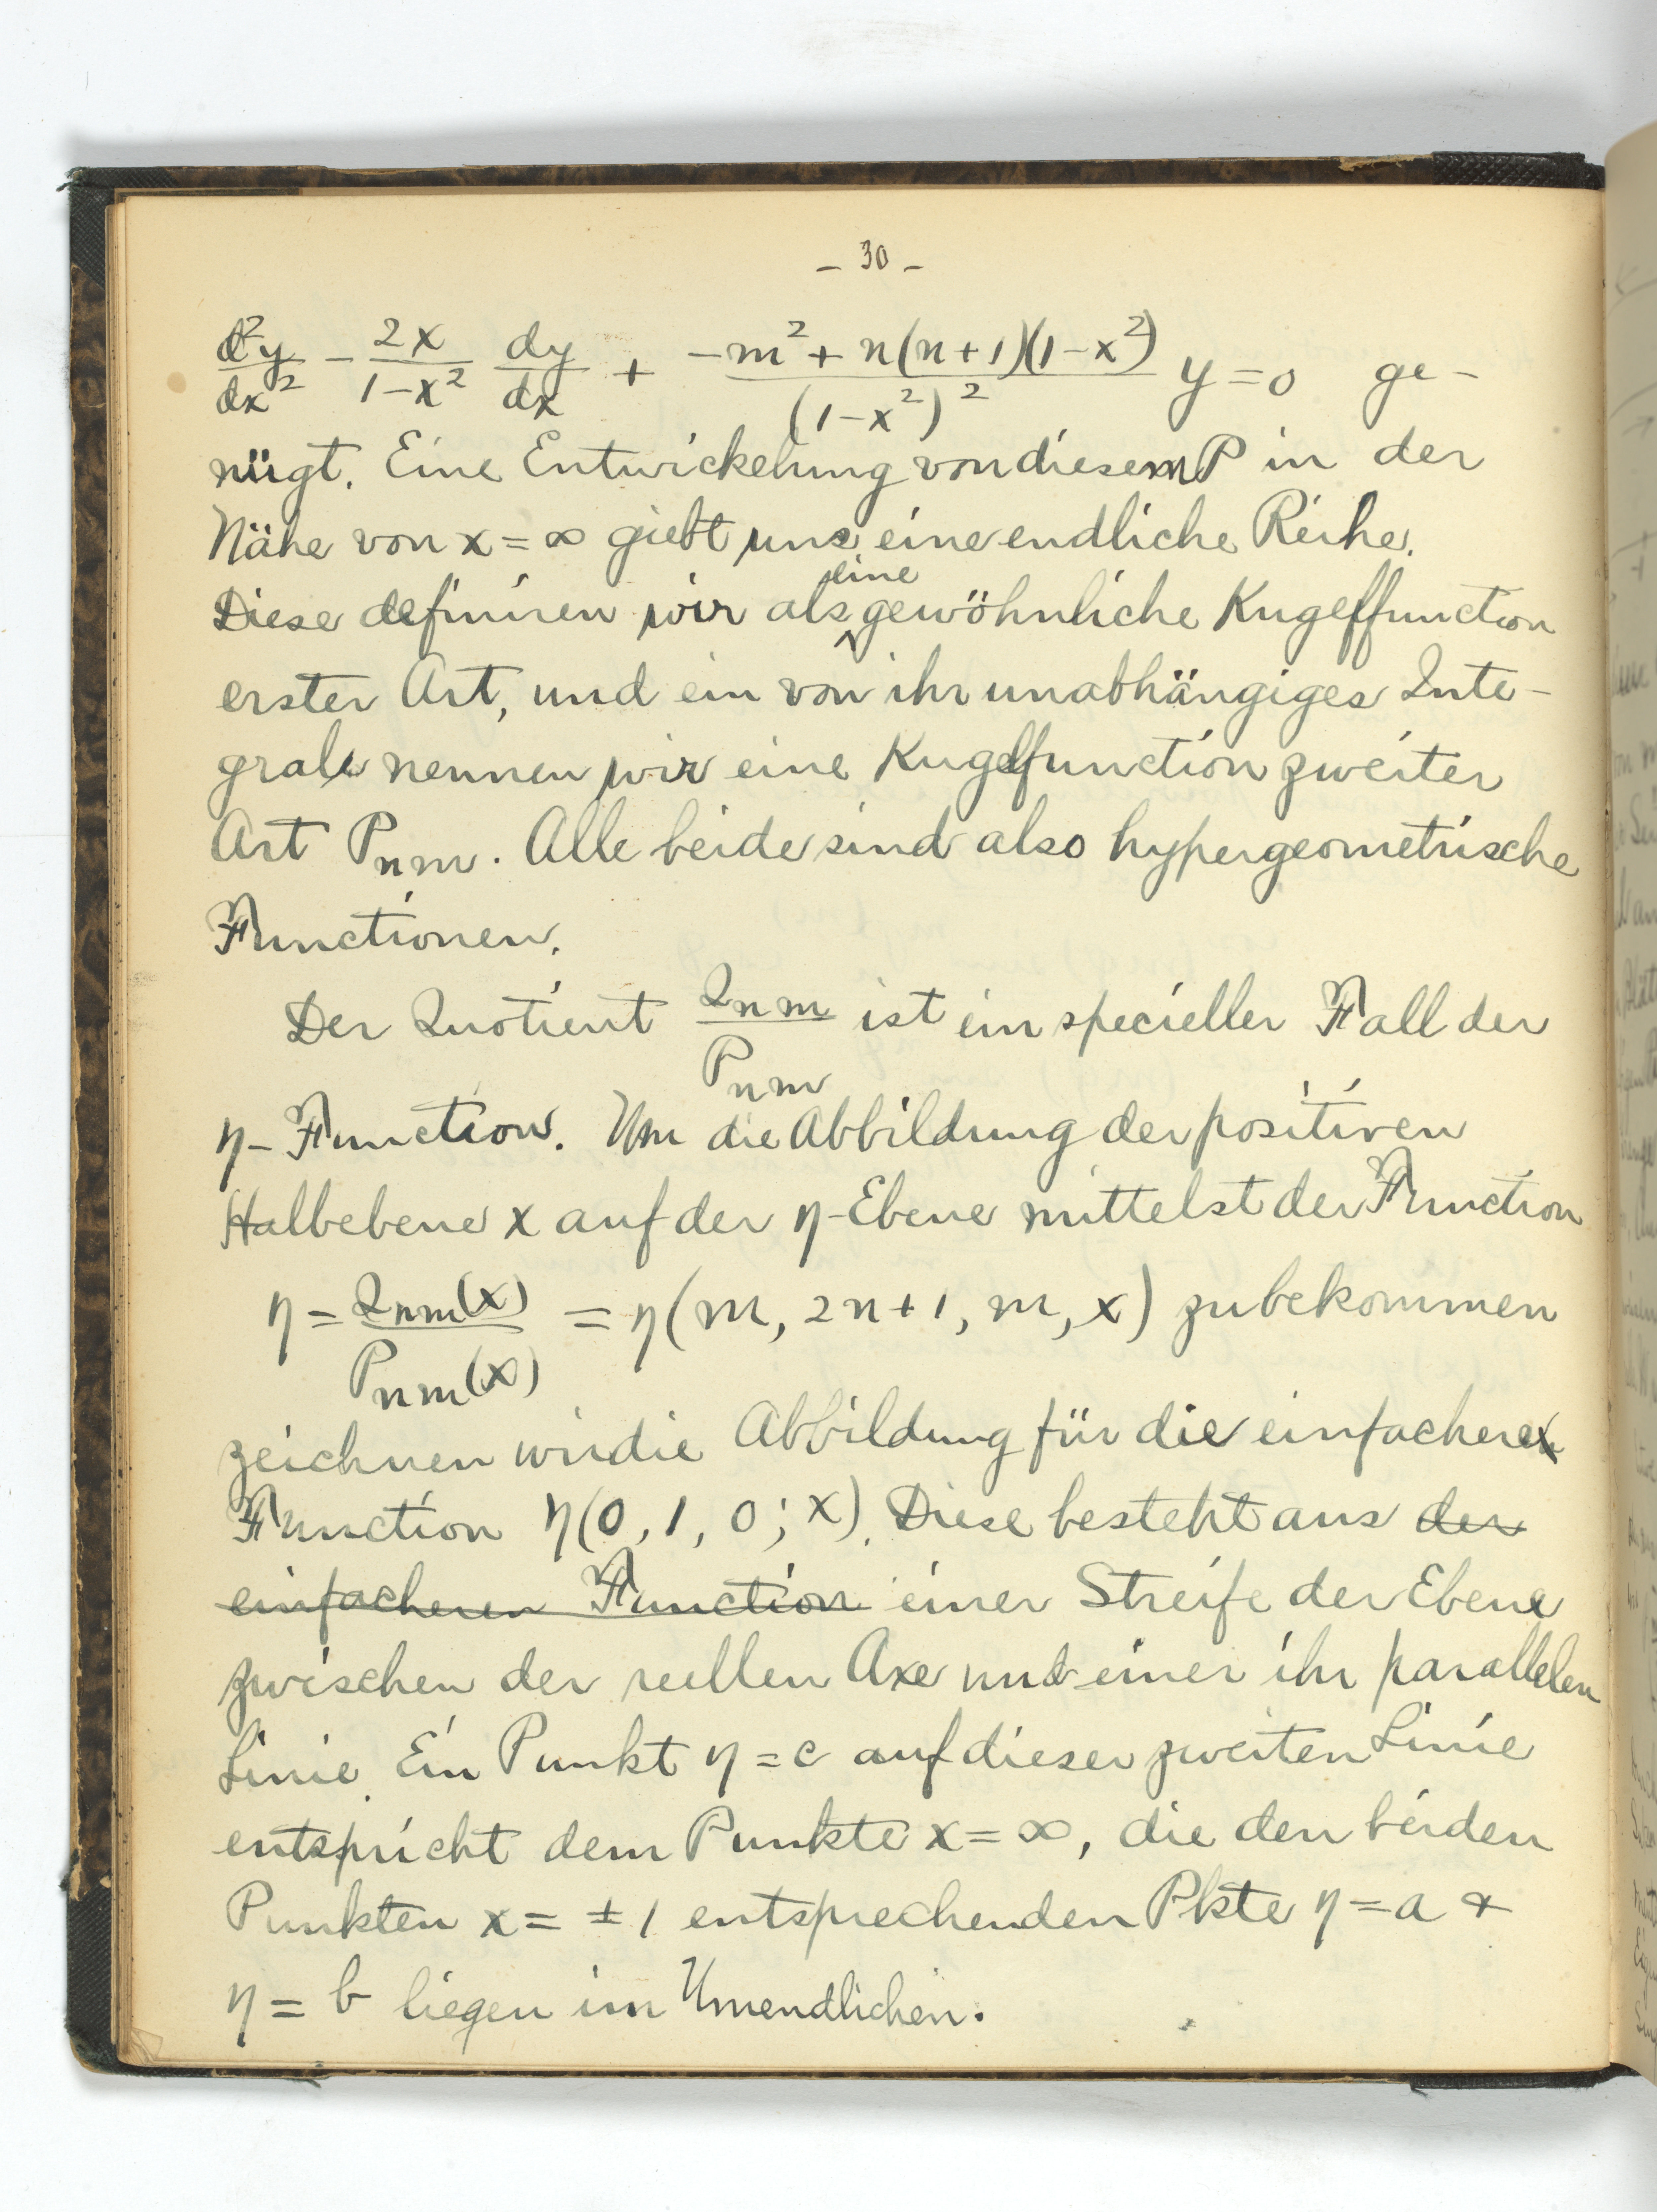 – 30 –
d²y/dx² – 2x/1–x² dy/dx + –m²+n(n+1)(1–x²)/(1–x²)² y=0 ge-
nügt. Eine Entwickelung von diesem P in der
Nähe von x=∞ giebt uns eine endliche Reihe.
Diese definiren wir als eine gewöhnliche Kugelffunction
erster Art, und ein von ihr unabhängiges Inte-
grale nennen wir eine Kugelfunction zweiter
Art Pnm. Alle beide sind also hypergeometrische
Functionen.
Der Quotient Qnm/Pnm ist ein specieller Fall der
η-Function. Um die Abbildung der positiven
Halbebene x auf der η-Ebene mittelst der Function
η = Qnm(x)/Pnm(x) = η(m, 2n+1, m, x) zu bekommen
zeichnen wir die Abbildung für die einfachere
Function η(0, 1, 0; x). Diese besteht aus der
einfacheren Function einer Streife der Ebene
zwischen der reellen Axe und einer ihr parallelen
Linie. Ein Punkt η=c auf dieser zweiten Linie
entspricht dem Punkte x=∞, die den beiden
Punkten x=±1 entsprechenden Pkte η=a +
η=b liegen im Unendlichen.